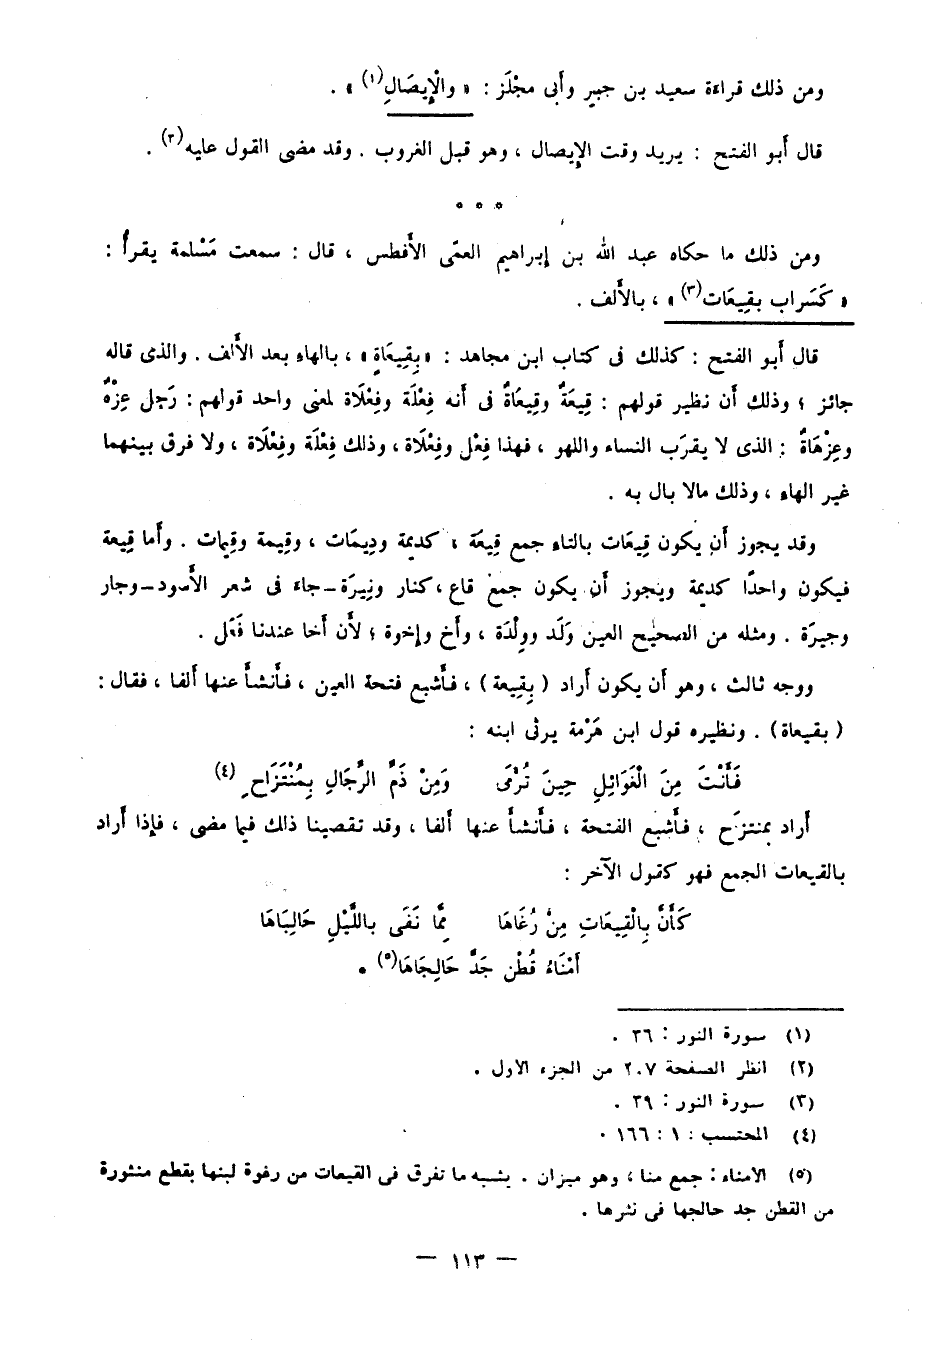 ومن ذلك قراءة سعيد بن جبير وأبى مجْلَز : « والْإِيصَالِ(١) » .
قال أَبو الفتح : يريد وقت الإِيصال ، وهو قبل الغروب . وقد مضى القول عليه(٢) .
* * *
ومن ذلك ما حكاه عبد الله بن إبراهيم العمّى الأَفطس ، قال : سمعت مَسْلمة يقرأُ :
« كَسَراب بقِيعَات(٣) » ، بالأَلف .
قال أَبو الفتح : كذلك فى كتاب ابن مجاهد : «بِقِيعَاةٍ» ، بالهاء بعد الأَلف . والذى قاله
جائز ؛ وذلك أَن نظير قولهم : قِيعَةٌ وقِيعَاةٌ فى أَنه فِعْلَة وفِعْلَاة لمعنى واحد قولهم : رَجل عِزْهٌ
وعِزْهَاةٌ : الذى لا يقرَب النساء واللهو ، فهذا فِعْل وفِعْلاة، وذلك فِعْلَة وفِعْلَاة ، ولا فرق بينهما
غير الهاء ، وذلك مالا بال به .
وقد يجوز أَن يكون قِيعَات بالتاء جمع قِيعَة ؛ كديمة ودِيمَات ، وقِيمة وقِيمات . وأَما قِيعة
فيكون واحدًا كديمة ويجوز أَن يكون جمعَ قاع ،كنار ونِيرَة ــ جاء فى شعر الأَسود ــ وجار
وجِيرَة . ومثله من الصحيح العين وَلَد ووِلْدَة ، وأَخ وإخوة ؛ لأَن أَخا عندنا فَعَل .
ووجه ثالث ، وهو أَن يكون أَراد ( بِقِيعة ) ، فأَشبع فتحة العين ، فأَنشأَ عنها ألفا ، فقال :
( بقيعاة ) . ونظيره قول ابن هَرْمة يرثى ابنه :
فَأَنْتَ مِنَ الْغَوَائِلِ حِينَ تُرْمَى وَمِنْ ذَمِّ الرِّجَالِ بِمُنْتَزَاحِ (٤)
أَراد بمنتزَح ، فأَشبع الفتحة ، فأَنشأَ عنها ألفا ، وقد تقصينا ذلك فيما مضى ، فإذا أَراد
بالقيعات الجمع فهو كقول الآخر :
كَأَنَّ بِالْقِيعَاتِ مِنْ رُغَاهَا مِمَّا نَفَى بِاللَّيْلِ حَالِبَاهَا
أَمْنَاءُ قُطْن جَدَّ حَالِجَاهَا(٥) .
(١) سورة النور : ٣٦ .
(٢) انظر الصفحة ٢٠٧ من الجزء الاول .
(٣) سورة النور : ٣٩ .
(٤) المحتسب : ١ : ١٦٦ .
(٥) الامناء : جمع منا ، وهو ميزان . يشبه ما تفرق فى القيعات من رغوة لبنها بقطع منثورة
من القطن جد حالجها فى نثرها .
— ١١٣ —